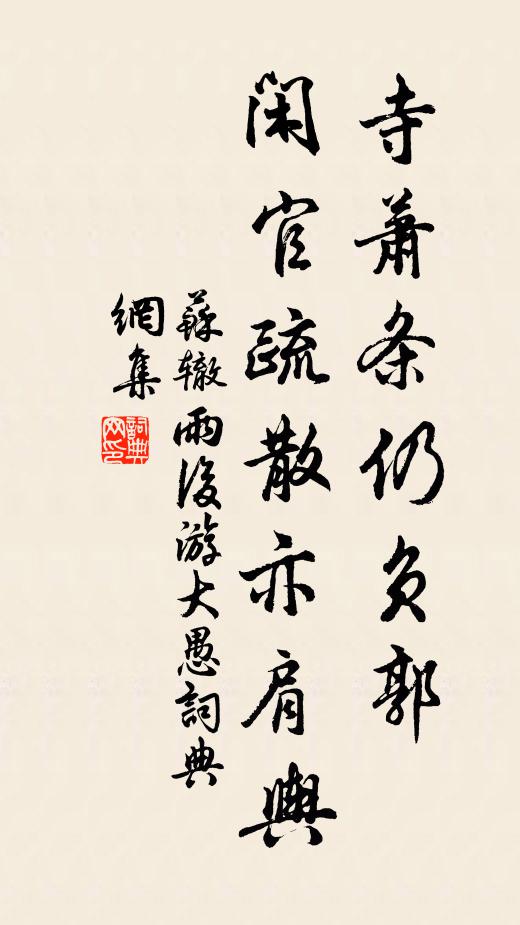 寺蕭条仍负郭
闲官疏散亦肩輿
蘇辙雨後游大愚詞典
網集
詞典网印